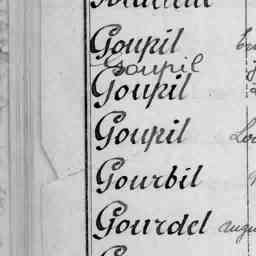 Goupil
Goupil
Goupil
Goupil
Gourbil
Gourdel